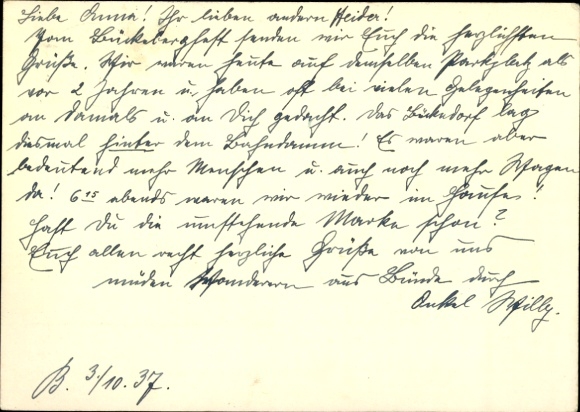 Liebe Anna! Ihr lieben andern Heider!
Vom Bückebergfest senden wir Euch die herzlichsten
Grüße. Wir waren heute auf demselben Parkplatz als
vor 2 Jahren u. haben oft bei vielen Gelegenheiten
an damals u. an Dich gedacht. Das Bückedorf lag
diesmal hinter dem Bahndamm! Es waren aber
bedeutend mehr Menschen u. auch noch mehr Wagen
da! 6 15 abends waren wir wieder im Hause!
Hast Du die umstehende Marke schon?
Euch allen recht herzliche Grüße von uns
müden Wanderern aus Bünde durch
Onkel Willy.
B. 3/10.37.